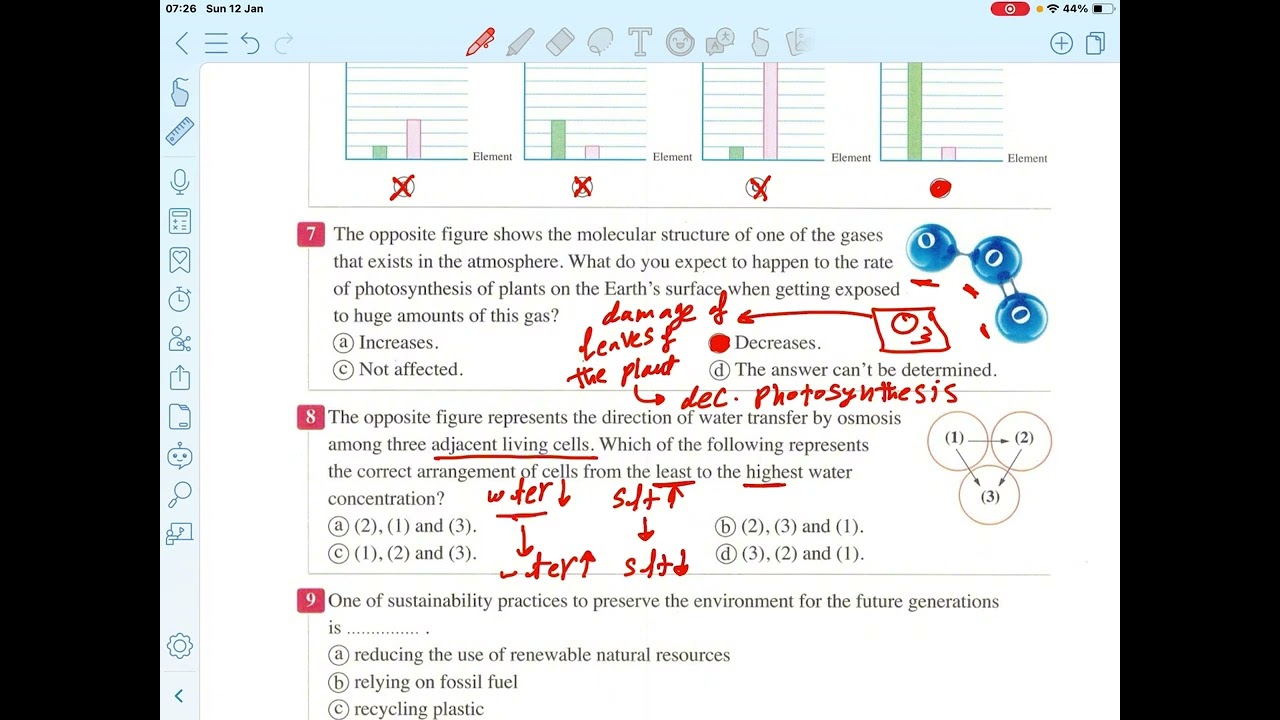 07:26 Sun 12 Jan
44%
T
Element
Element
Element
Element
7 The opposite figure shows the molecular structure of one of the gases
that exists in the atmosphere. What do you expect to happen to the rate
of photosynthesis of plants on the Earth's surface when getting exposed
to huge amounts of this gas?
O
O
O
damage of
leaves of
the plant
O3
dec. photosynthesis
a Increases.
Decreases.
c Not affected.
d The answer can't be determined.
8 The opposite figure represents the direction of water transfer by osmosis
among three adjacent living cells. Which of the following represents
the correct arrangement of cells from the least to the highest water
concentration?
(1) (2)
(3)
water↓ salt↑
water↑ salt↓
a (2), (1) and (3).
b (2), (3) and (1).
c (1), (2) and (3).
d (3), (2) and (1).
9 One of sustainability practices to preserve the environment for the future generations
is ............... .
a reducing the use of renewable natural resources
b relying on fossil fuel
c recycling plastic